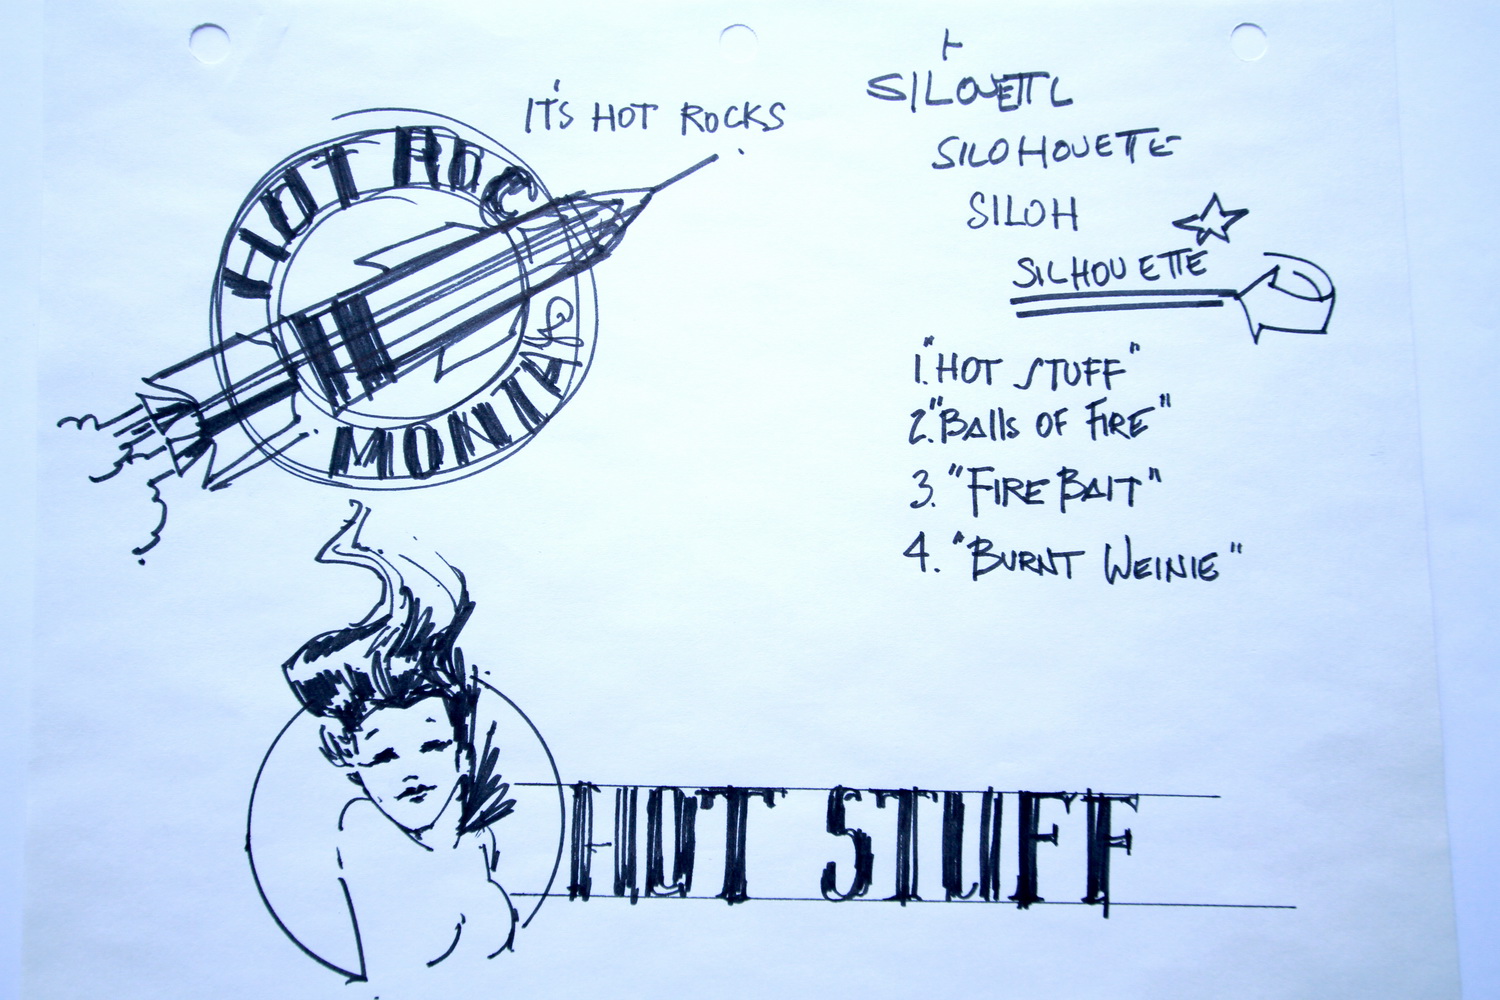 IT'S HOT ROCKS
HOT ROC
MONTA
SILOUETTE
SILOHOUETTE
SILOH
SILHOUETTE
1. "HOT STUFF"
2. "BAllS OF FIRE"
3. "FIRE BAIT"
4. "BURNT WEINIE"
HOT STUFF